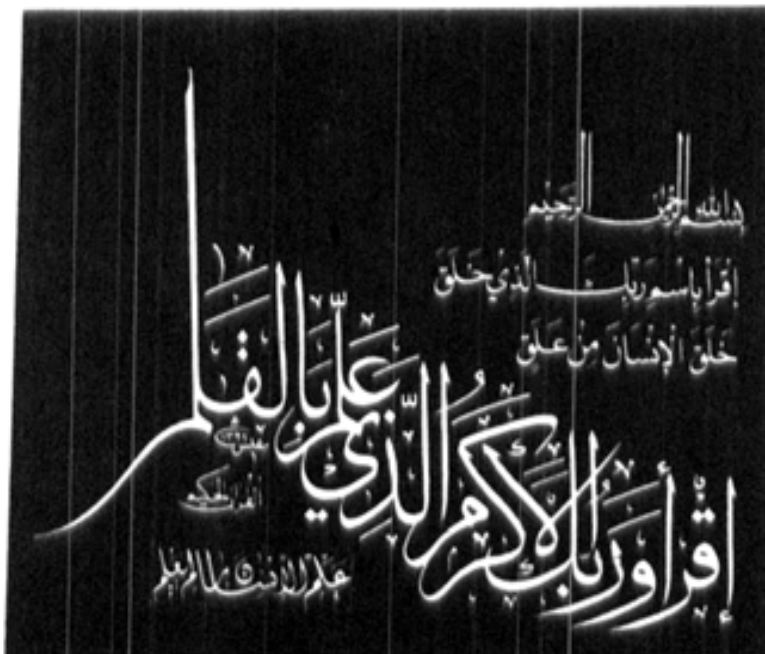 بسم الله الرحمن الرحيم
اِقْرَأْ بِاسْمِ رَبِّكَ الَّذِي خَلَقَ
خَلَقَ الْإِنْسَانَ مِنْ عَلَقٍ
إقرأ وربك الاكرم الذي علم بالقلم
القرآن الحكيم
علم الانسان مالم يعلم